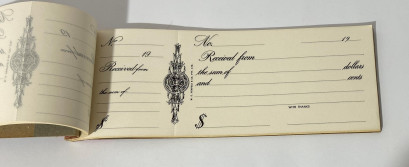 No.
19
Received from
the sum of
$
No. 19
Received from
the sum of dollars
and cents
$